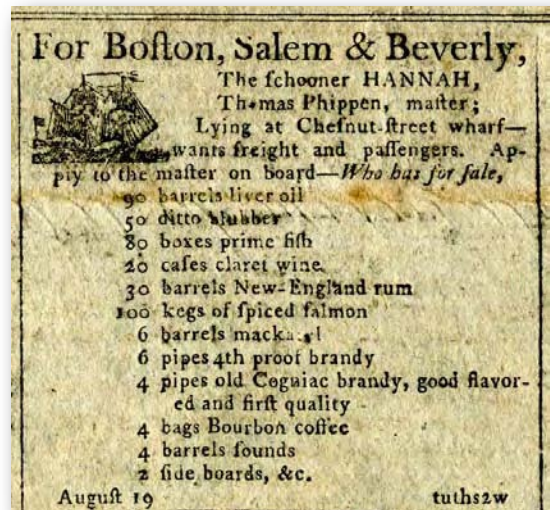 For Boſton, Salem & Beverly,
The ſchooner HANNAH,
Thomas Phippen, maſter;
Lying at Cheſnut-ſtreet wharf—
wants freight and paſſengers. Ap-
ply to the maſter on board—Who has for ſale,
90 barrels liver oil
50 ditto blubber
80 boxes prime fiſh
20 caſes claret wine
30 barrels New-England rum
100 kegs of spiced ſalmon
6 barrels mackarel
6 pipes 4th proof brandy
4 pipes old Cogniac brandy, good flavor-
ed and firſt quality
4 bags Bourbon coffee
4 barrels ſounds
2 ſide boards, &c.
Auguſt 19 tuths2w